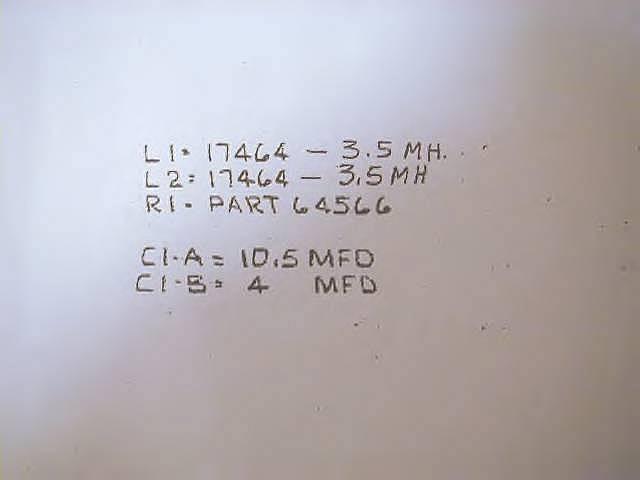 L1= 17464 - 3.5 MH.
L2= 17464 - 3.5 MH
R1- PART 64566
C1-A = 10.5 MFD
C1-B= 4 MFD